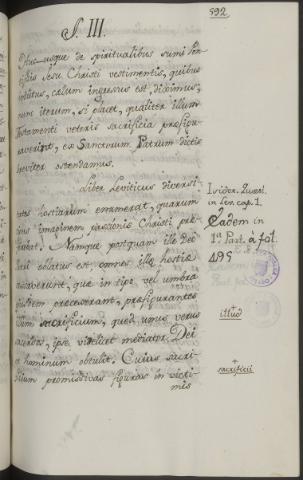 592
§. III.
Huc usque de spiritualibus summi Pon-
tificis Jesu Christi vestimentis, quibus
indutus, cælum ingressus est, diximus,
nunc iterum, si placet, qualiter illum
Testamenti veteris sacrificia præfigu-
raverint, ex Sanctorum Patrum dictis
breviter ostendamus.
Liber Leviticus diversi-
tates hostiarum enumerat, quarum
imaginem Christi præ-
Namque postquam ille
oblatus est, omnes illæ hostiæ
quæ in typo, vel umbra
præcesserant, præfigurantes
illum sacrificium, quod unus verus
sacerdos, ipse videlicet mediator Dei
et hominum obtulit. Cuius sacri-
ficii præmissivas figuras in victi-
mis
Isidor. Quæst.
in Lev. cap. 1.
Eadem in
1ª Part. à fol.
495
illud
+
sacrificii